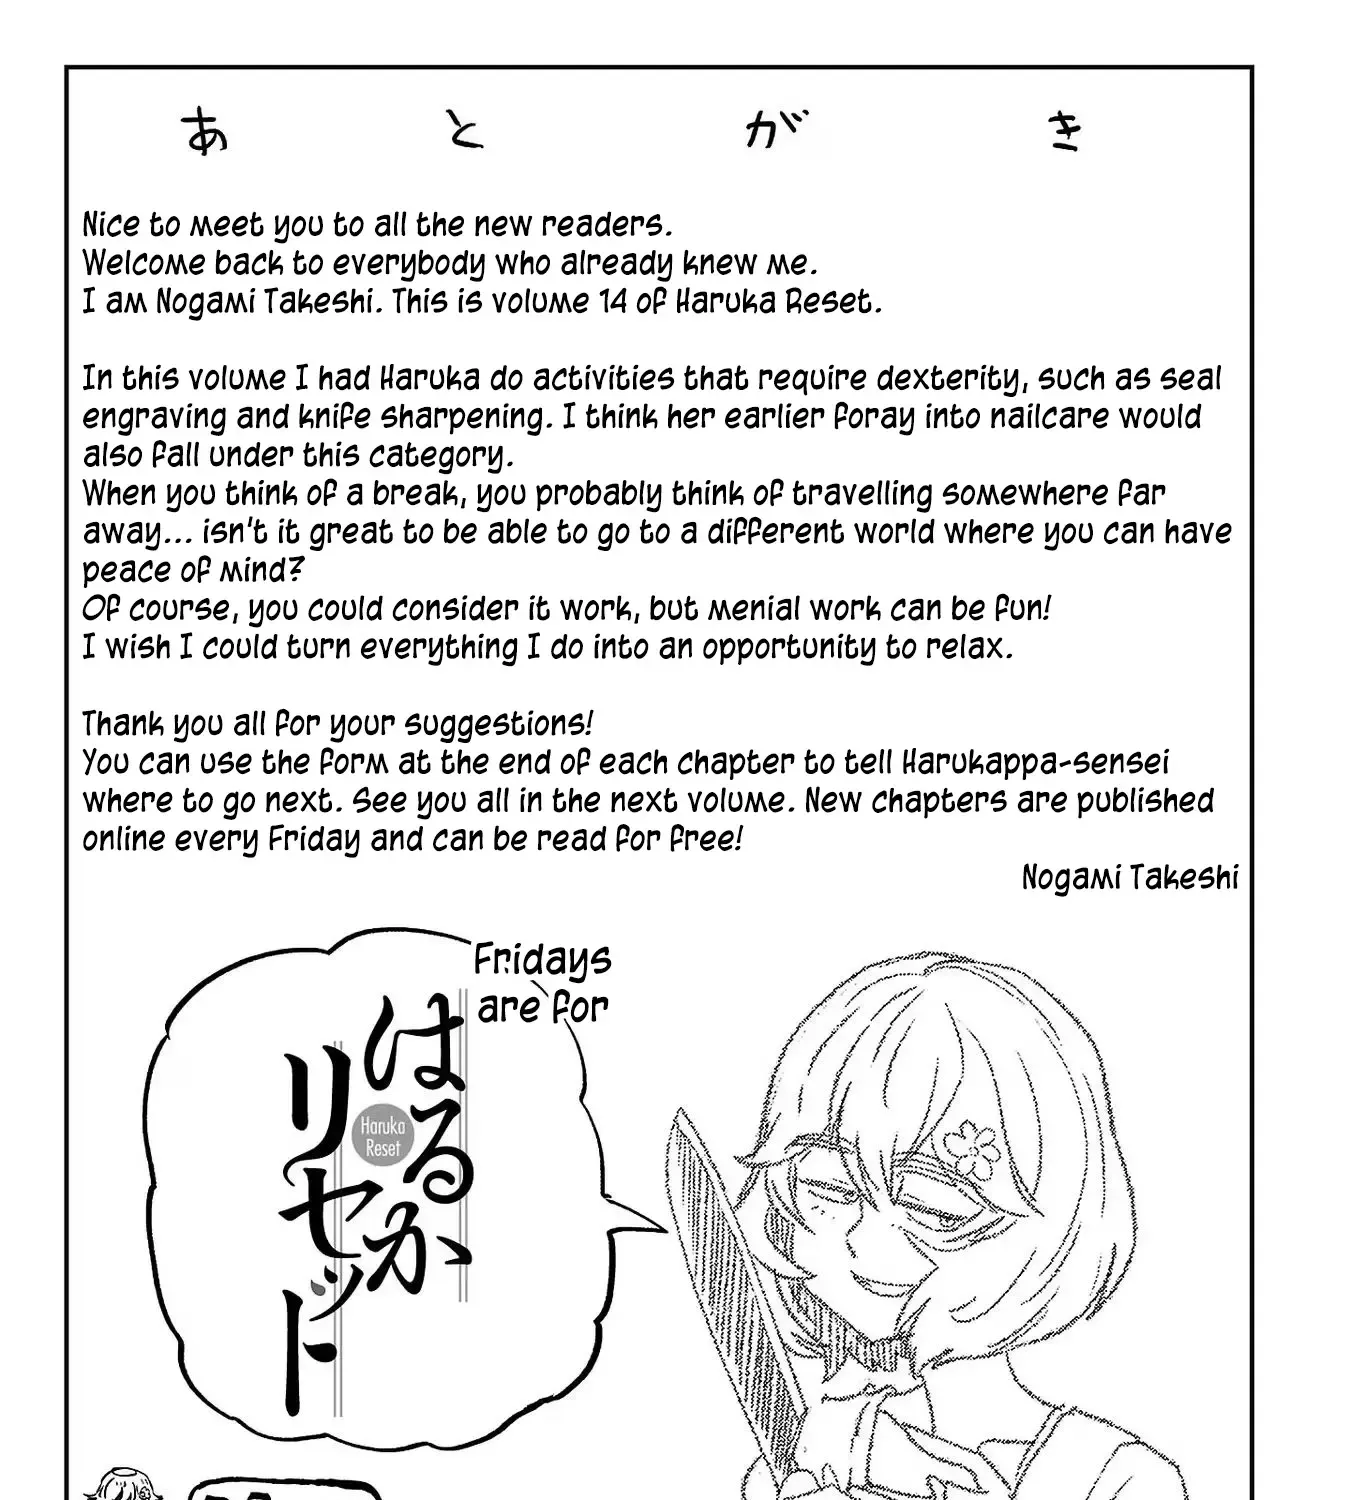 あとがき
Nice to meet you to all the new readers.
Welcome back to everybody who already knew me.
I am Nogami Takeshi. This is volume 14 of Haruka Reset.
In this volume I had Haruka do activities that require dexterity, such as seal
engraving and knife sharpening. I think her earlier foray into nailcare would
also fall under this category.
When you think of a break, you probably think of travelling somewhere far
away... isn't it great to be able to go to a different world where you can have
peace of mind?
Of course, you could consider it work, but menial work can be fun!
I wish I could turn everything I do into an opportunity to relax.
Thank you all for your suggestions!
You can use the form at the end of each chapter to tell Harukappa-sensei
where to go next. See you all in the next volume. New chapters are published
online every Friday and can be read for free!
Nogami Takeshi
Fridays
are for
はるか
リセット
Haruka
Reset